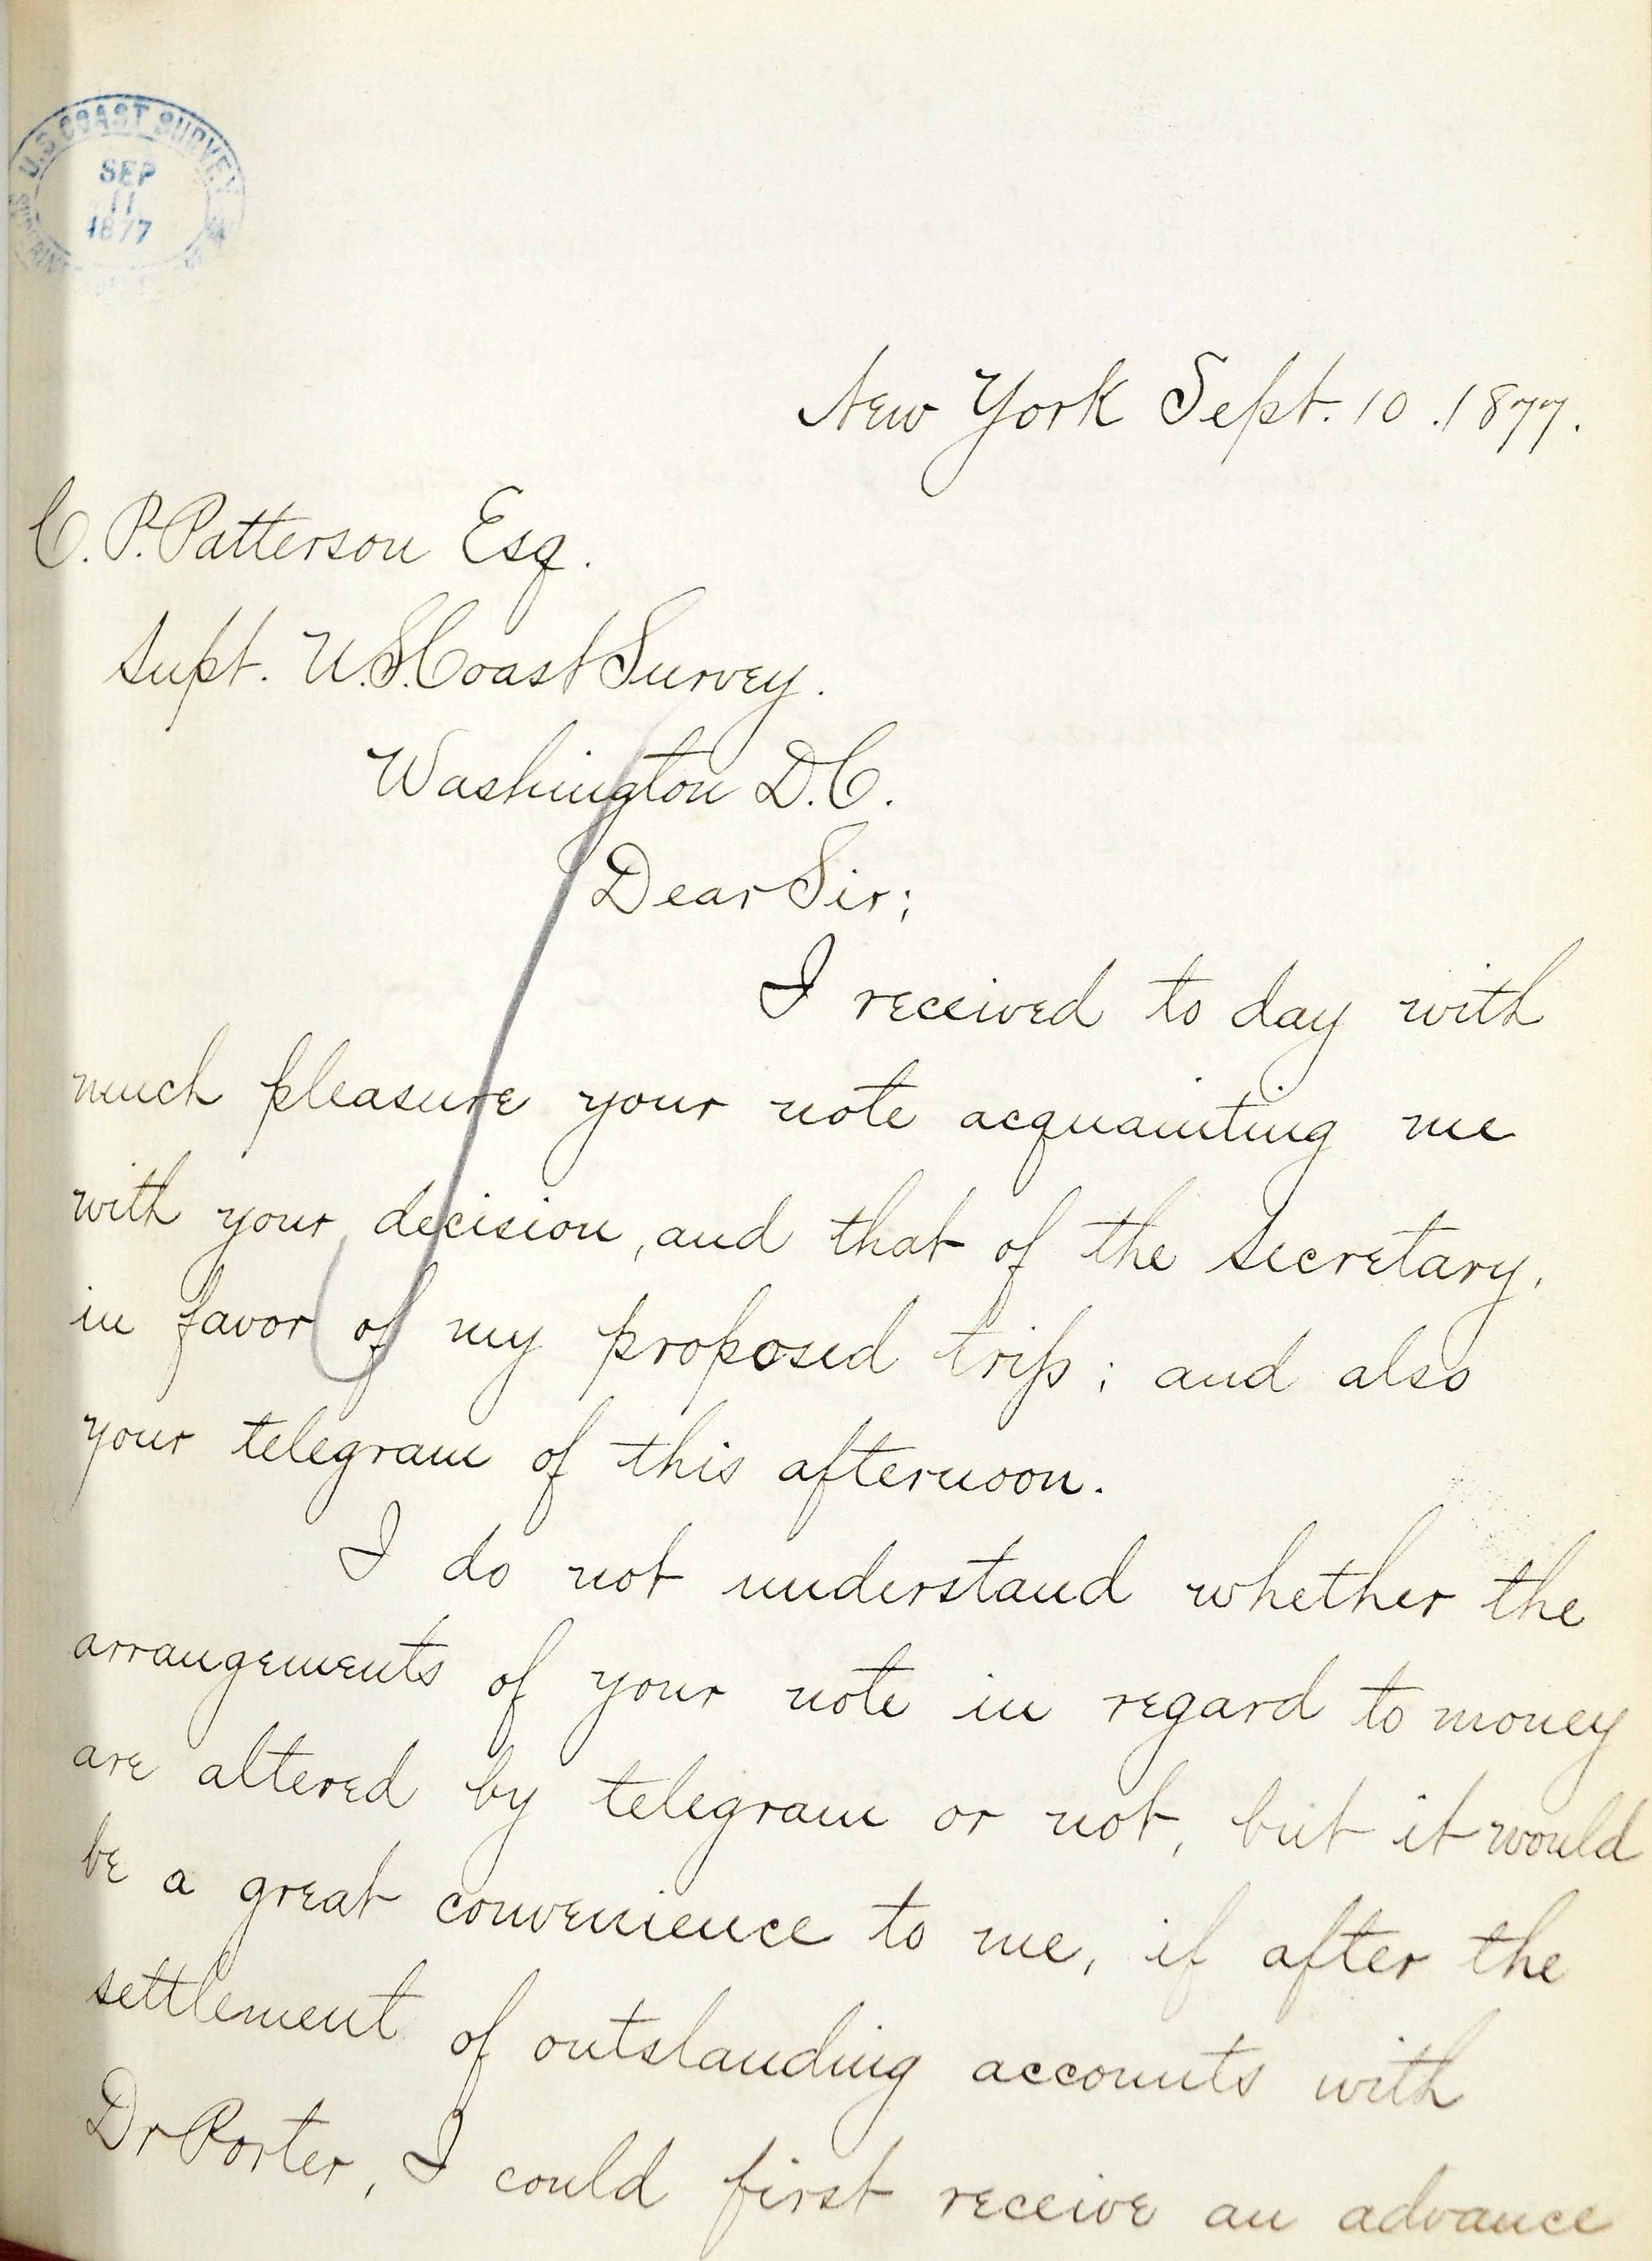 U.S. COAST SURVEY
SEP
11
1877
New York Sept. 10. 1877.
C. P. Patterson Esq.
Supt. U.S. Coast Survey.
Washington D.C.
Dear Sir;
I received to day with
much pleasure your note acquainting me
with your decision, and that of the Secretary,
in favor of my proposed trip; and also
your telegram of this afternoon.
I do not understand whether the
arrangements of your note in regard to money
are altered by telegram or not, but it would
be a great convenience to me, if after the
settlement of outstanding accounts with
Dr Porter, I could first receive an advance